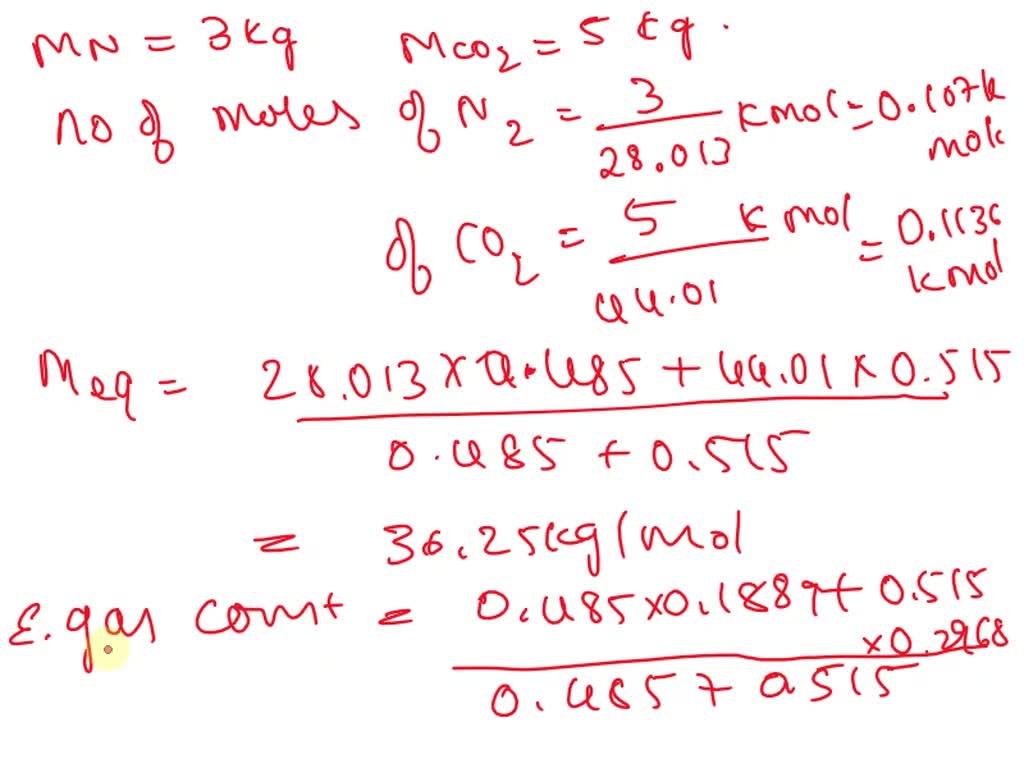 MN = 3kg MCO2 = 5 kg.
no of moles of N2 = 3/28.013 kmol = 0.107 kmole
of CO2 = 5/44.01 kmol = 0.1136 kmol
Meq = 28.013 x 0.485 + 44.01 x 0.515
0.485 + 0.515
= 36.25kg/mol
E. gas const = 0.485x0.1889 + 0.515
x0.2968
0.485 + 0.515